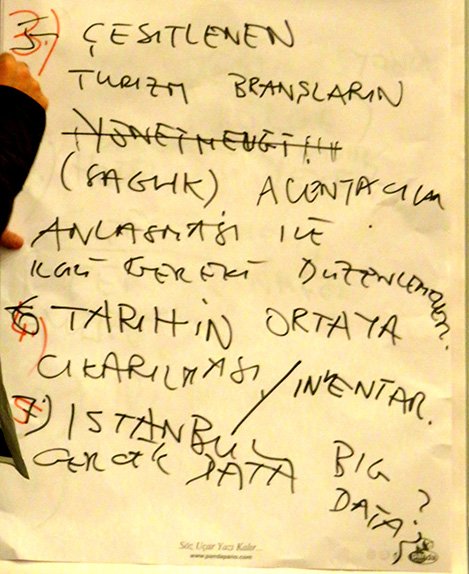 3.) ÇEŞİTLENEN
TURİZM BRANŞLARIN
YÖNETMELİĞİ
(SAGLIK) ACENTACILIK
ANLAŞMASI İLE
GEREKLİ DÜZENLEMELER.
4) TARİHİN ORTAYA
ÇIKARILMASI / INVENTAR.
5) İSTANBUL BIG
GERÇEK DATA DATA?
Söz Uçar Yazı Kalır...
www.pandapano.com